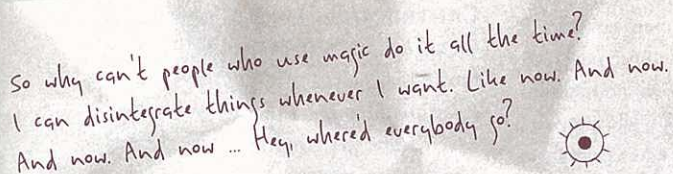 So why can't people who use magic do it all the time?
I can disintegrate things whenever I want. Like now. And now.
And now. And now ... Hey, where'd everybody go?